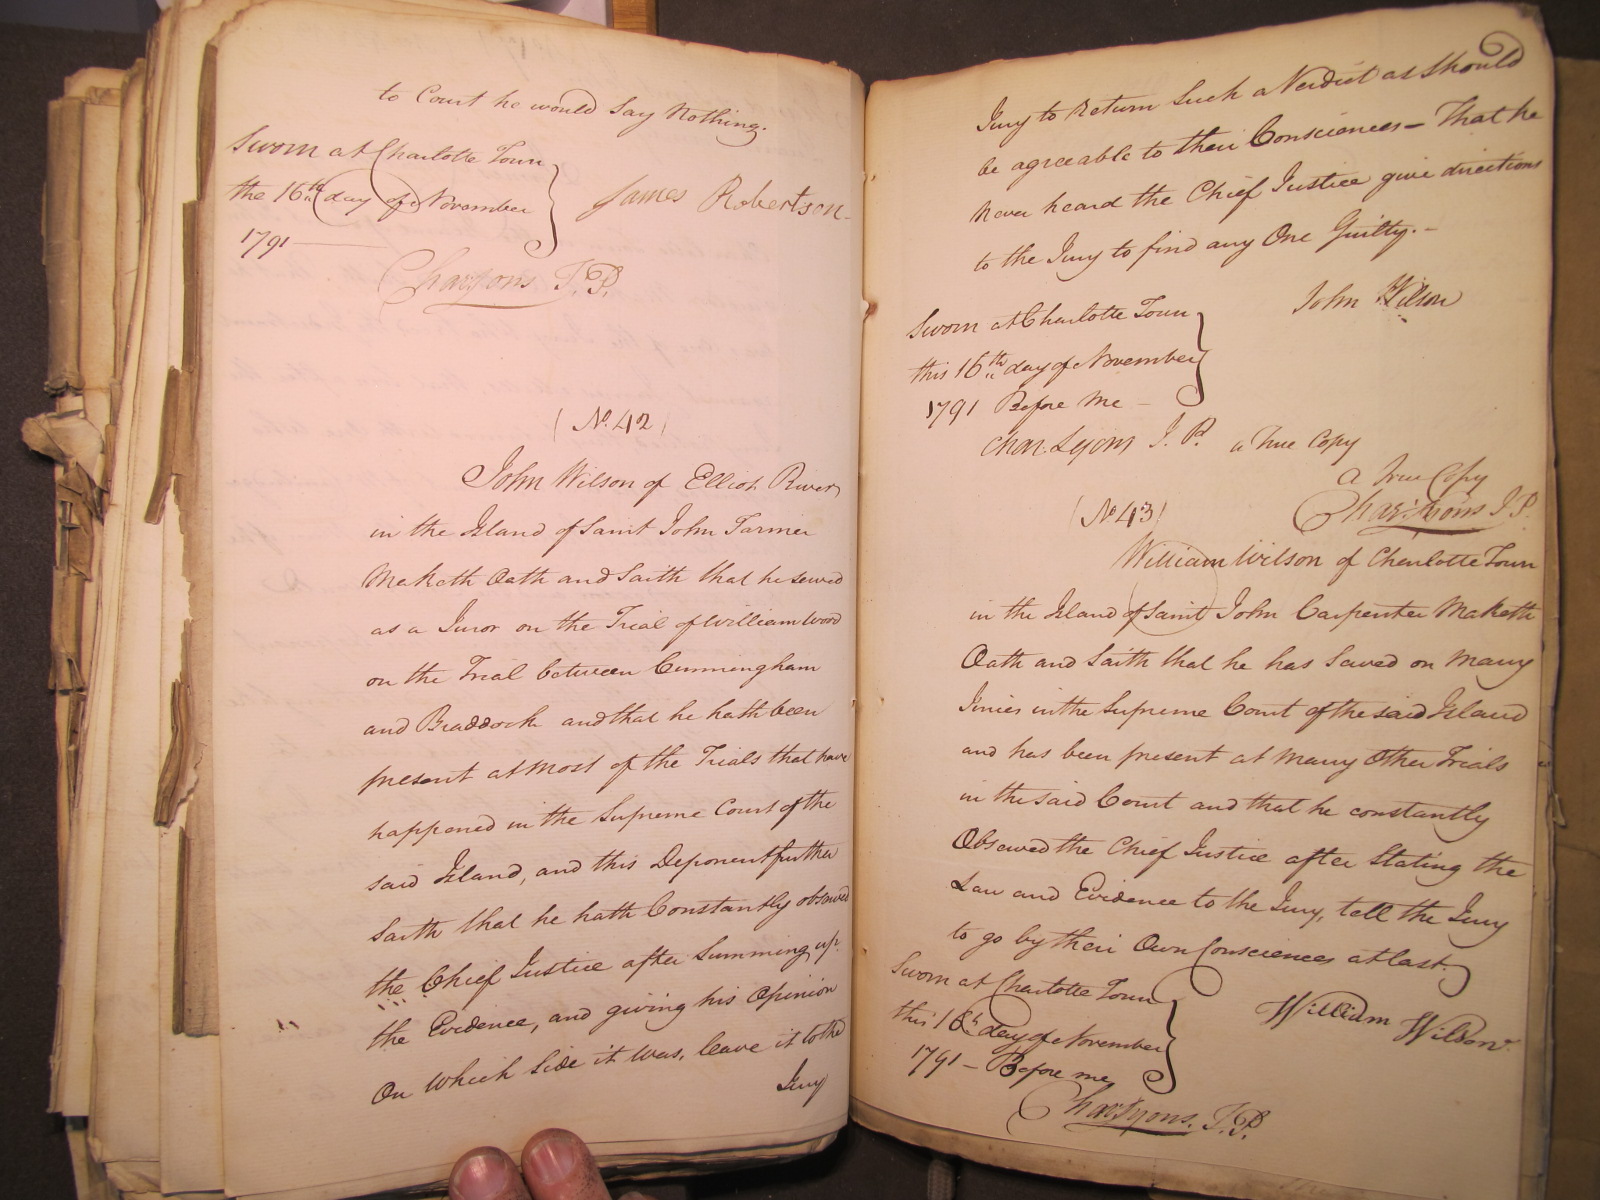 to Court he would Say Nothing.
Sworn at Charlotte Town
the 16th day of November
1791
James Robertson
Chas Lyons J.P.
(No. 42)
John Wilson of Elliot River
in the Island of Saint John Farmer
Maketh Oath and Saith that he served
as a Juror on the Trial of William Wood
on the Trial between Cunningham
and Braddock and that he hath been
present at Most of the Trials that have
happened in the Supreme Court of the
said Island, and this Deponent further
saith that he hath Constantly observed
the Chief Justice after Summing up
the Evidence, and giving his Opinion
On Which Side it Was, leave it to the
Jury
Jury to Return Such a Verdict as Should
be agreeable to their Consciences - That he
Never heard the Chief Justice give directions
to the Jury to find any One Guilty. -
John Wilson
Sworn at Charlotte Town
this 16th day of November
1791 Before Me -
Chas. Lyons J. P. a True Copy
a True Copy
Chas. Lyons J P.
(No. 43)
William Wilson of Charlotte Town
in the Island of Saint John Carpenter Maketh
Oath and Saith that he has Served on Many
Juries in the Supreme Court of the said Island
and has been present at Many Other Trials
in the said Court and that he constantly
Observed the Chief Justice after Stating the
Law and Evidence to the Jury, tell the Jury
to go by their Own Consciences at last.
Sworn at Charlotte Town
this 16th day of November
1791 - Before me
William Wilson
Chas Lyons. J.P.